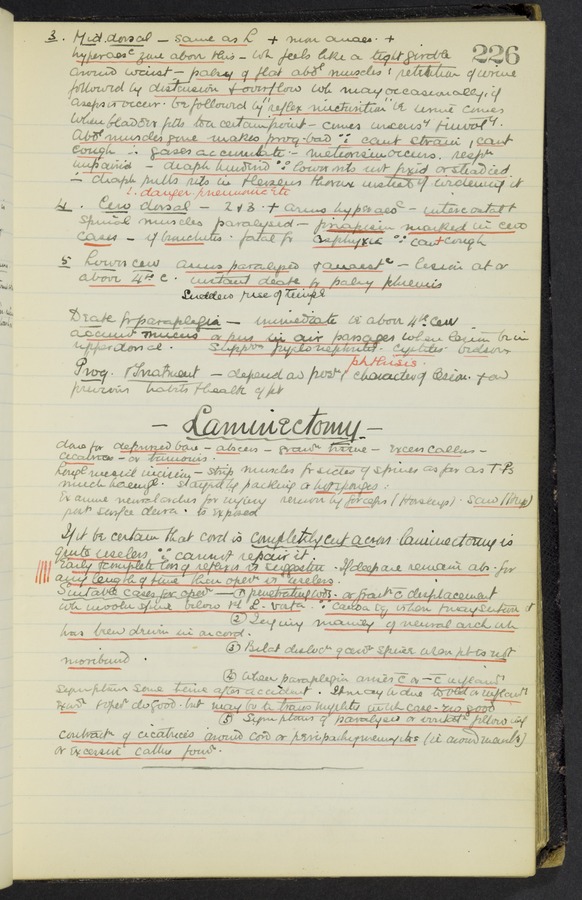 226
3. Mid. dorsal — same as L + more anaes. +
hyperaesc zone above this — wh feels like a tight girdle
around waist — palsy of flat abdl muscles ∴ retention of urine
followed by distension & overflow wh may occasionally, if
asepsis occur be followed by "reflex micturition" ie urine comes
when bladder gets to a certain point — comes &
Abdl muscles gone makes prog. bad ∵ cant strain, cant
cough ∴ gases accumulate — meteorism occurs. respn
impaired — diaph hindered ∵ lower ribs not fixed or steadied
— diaph pulls ribs in & lessens thorax instead of widening it
∴ danger pneumonia etc
4. Cerv dorsal — 2 & 3. + arms hyperaesc — intercostal +
spinal muscles paralysed — priapism marked in cerv
cases — if bronchitis. fatal fr asphyxia ∵ cant cough
5. Lower cerv arms paralysed & anaestc — lesion at or
above 4th c. instant death fr palsy phrenic
Sudden rise of temp
Death fr paraplegia — immediate ie above 4th Cerv
accumn mucus or pus in air passages when lesion be in
upper dorsal. pyelonephritis. cystitis bedsore
phthisis.
Prog. & treatment — depend on posn / character of lesion. + on
previous habits & health of pt
— Laminectomy —
done for depressed bone — abscess — grann tissue — excess callus —
cicatrices — or tumours.
Longl mesial incision — strip muscles fr sides of spines as far as T.Ps
much haemge. stayed by packing c hot sponges:
Examine neural arches for injury remove by forceps (Horsleys). Saw (Heys)
dura is exposed
If it be certain that cord is completely cut across laminectomy is
quite useless ∵ cannot repair it.
Early & complete loss of reflexes is suggestive. If deep are remain abs. for
any length of time then opern is useless.
Suitable cases for opern — (1) penetrating wds. or fractc displacement
(2) Injury mainly of neural arch wh
has been driven in on cord.
(3) Bilat dislocn of cerv spine when pt is not
moribund.
(4) When paraplegia arises c or — c inflamy
symptoms some time after accident. It may be due to bld or inflamy
do good. but may be to transv myelitis in wh case — no good
(5) Symptoms of paralysis or following
contractn of cicatrices around cord or peripachymeningitis (ie around membs)
or excessive callus formn.